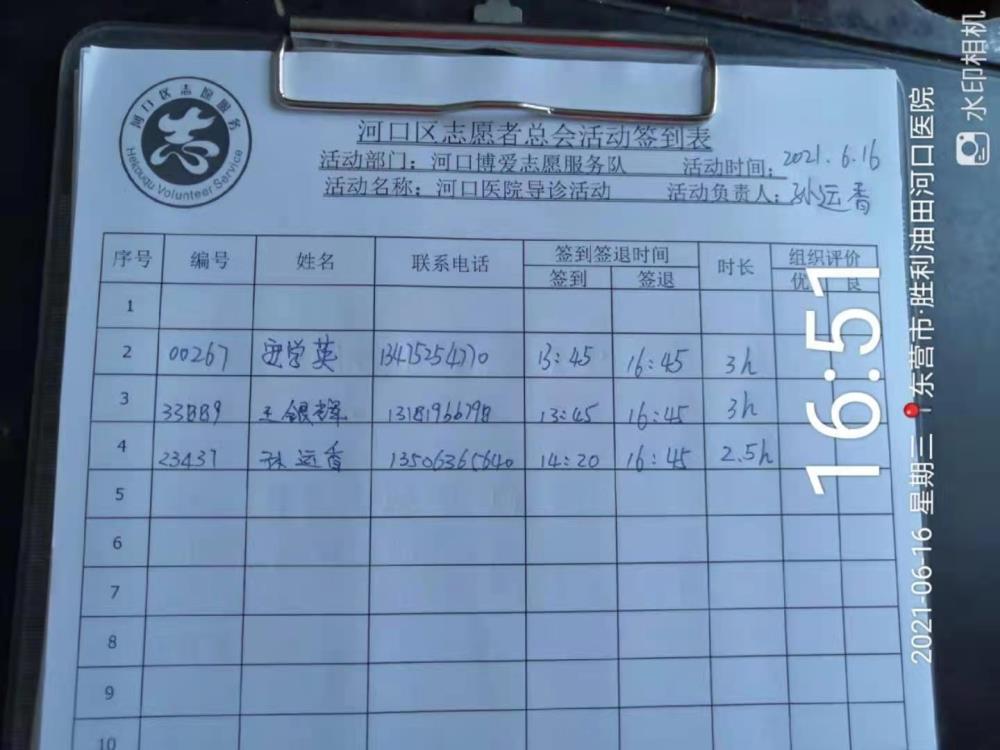 河口区志愿服务
Hekouqu Volunteer Service
河口区志愿者总会活动签到表
活动部门：河口博爱志愿服务队 活动时间：2021.6.16
活动名称：河口医院导诊活动 活动负责人：孙远香
序号 编号 姓名 联系电话 签到签退时间 时长 组织评价
签到 签退 优 良
1
2 00267 学英 13475254770 13:45 16:45 3h
3 33889 王银辉 13181966798 13:45 16:45 3h
4 23437 孙远香 13506365640 14:20 16:45 2.5h
5
6
7
8
9
10
16:51
2021-06-16 星期三 东营市·胜利油田河口医院
水印相机